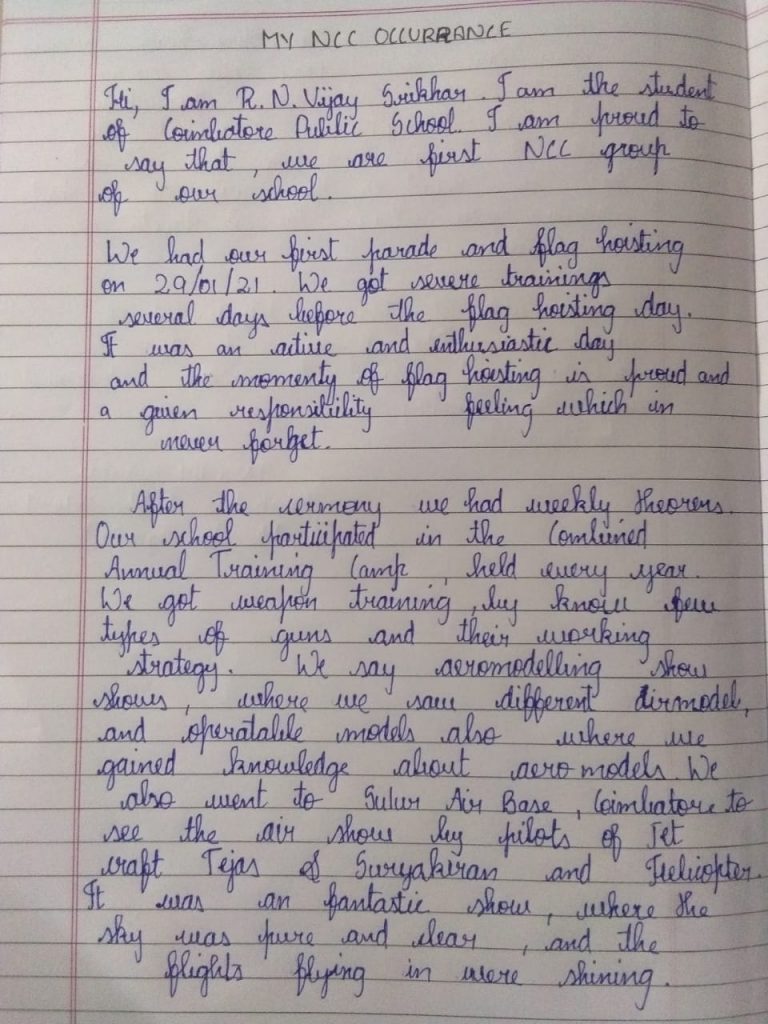 MY NCC OCCURRANCE
Hi, I am R. N. Vijay Srikhar. I am the student
of Coimbatore Public School. I am proud to
say that, we are first NCC group
of our school.
We had our first parade and flag hoisting
on 29/01/21. We got severe trainings
several days before the flag hoisting day.
It was an active and enthusiastic day
and the momenty of flag hoisting is proud and
a given responsibility feeling which in
never forget.
After the cermony we had weekly theorens.
Our school participated in the Combined
Annual Training Camp, held every year.
We got weapon training, by know few
types of guns and their working
strategy. We say aeromodelling show
shows, where we saw different airmodel,
and operatable models also where we
gained knowledge about aeromodels. We
also went to Sulur Air Base, Coimbatore to
see the air show by pilots of Jet
craft Tejas & Suryakiran and Helicopter.
It was an fantastic show, where the
sky was pure and clear, and the
flights flying in were shining.